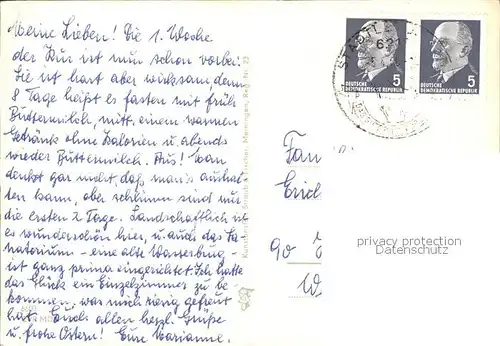 Meine Lieben! Die 1. Woche
der Kur ist nun schon vorbei!
Sie ist hart aber wirksam, denn
8 Tage heißt es fasten mit früh
Buttermilch, mitt. einem warmen
Getränk ohne Kalorien u. abends
wieder Buttermilch. Aus! Man
denkt gar nicht, daß man's aushal-
ten kann, aber schlimm sind nur
die ersten 2 Tage. Landschaftlich ist
es wunderschön hier, u. auch das Sa-
natorium - eine alte Wasserburg -
ist ganz prima eingerichtet. Ich hatte
das Glück ein Einzelzimmer zu be-
kommen, was mich riesig gefreut
hat. Euch allen herzl. Grüße
u. frohe Ostern! Eure Marianne.
5
DEUTSCHE
DEMOKRATISCHE REPUBLIK
5
DEUTSCHE
DEMOKRATISCHE REPUBLIK
Fam
Erich
90
privacy protection
VINTAGEPOSTCARDS